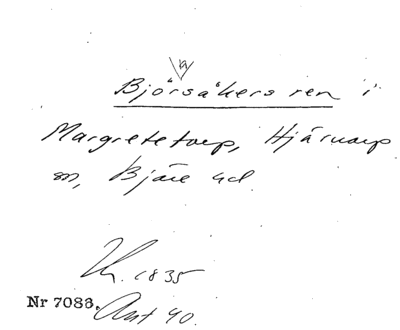 Björnsåkers ren i
Margretetorp, Hjärnarp
sn, Bjäre hd
1835
Nr 7083. Ant 40.